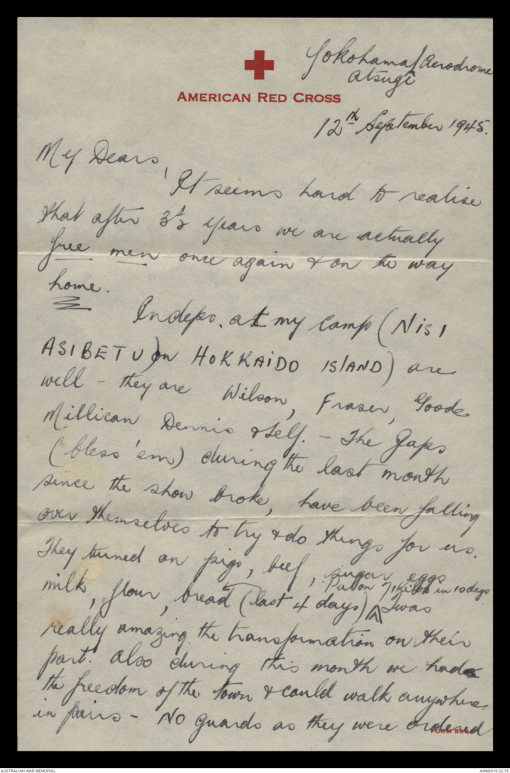 Yokohama/Aerodrome
Atsugi
AMERICAN RED CROSS
12th September 1945.
My Dears,
It seems hard to realise
that after 3½ years we are actually
free men once again & on the way
home.
Indeps. at my camp (NISI
ASIBETU) on HOKKAIDO ISLAND) are
well - they are Wilson, Fraser, Goode
Millican Dennis & self. - The Japs
(bless 'em) during the last month
since the show broke, have been falling
over themselves to try & do things for us.
They turned on pigs, beef, sugar, eggs
milk, flour, bread (last 4 days) ^ Twas
put on 7 kilos in 10 days
really amazing the transformation on their
part. Also during this month we had
the freedom of the town & could walk anywhere
in pairs - No guards as they were ordered
AUSTRALIAN WAR MEMORIAL